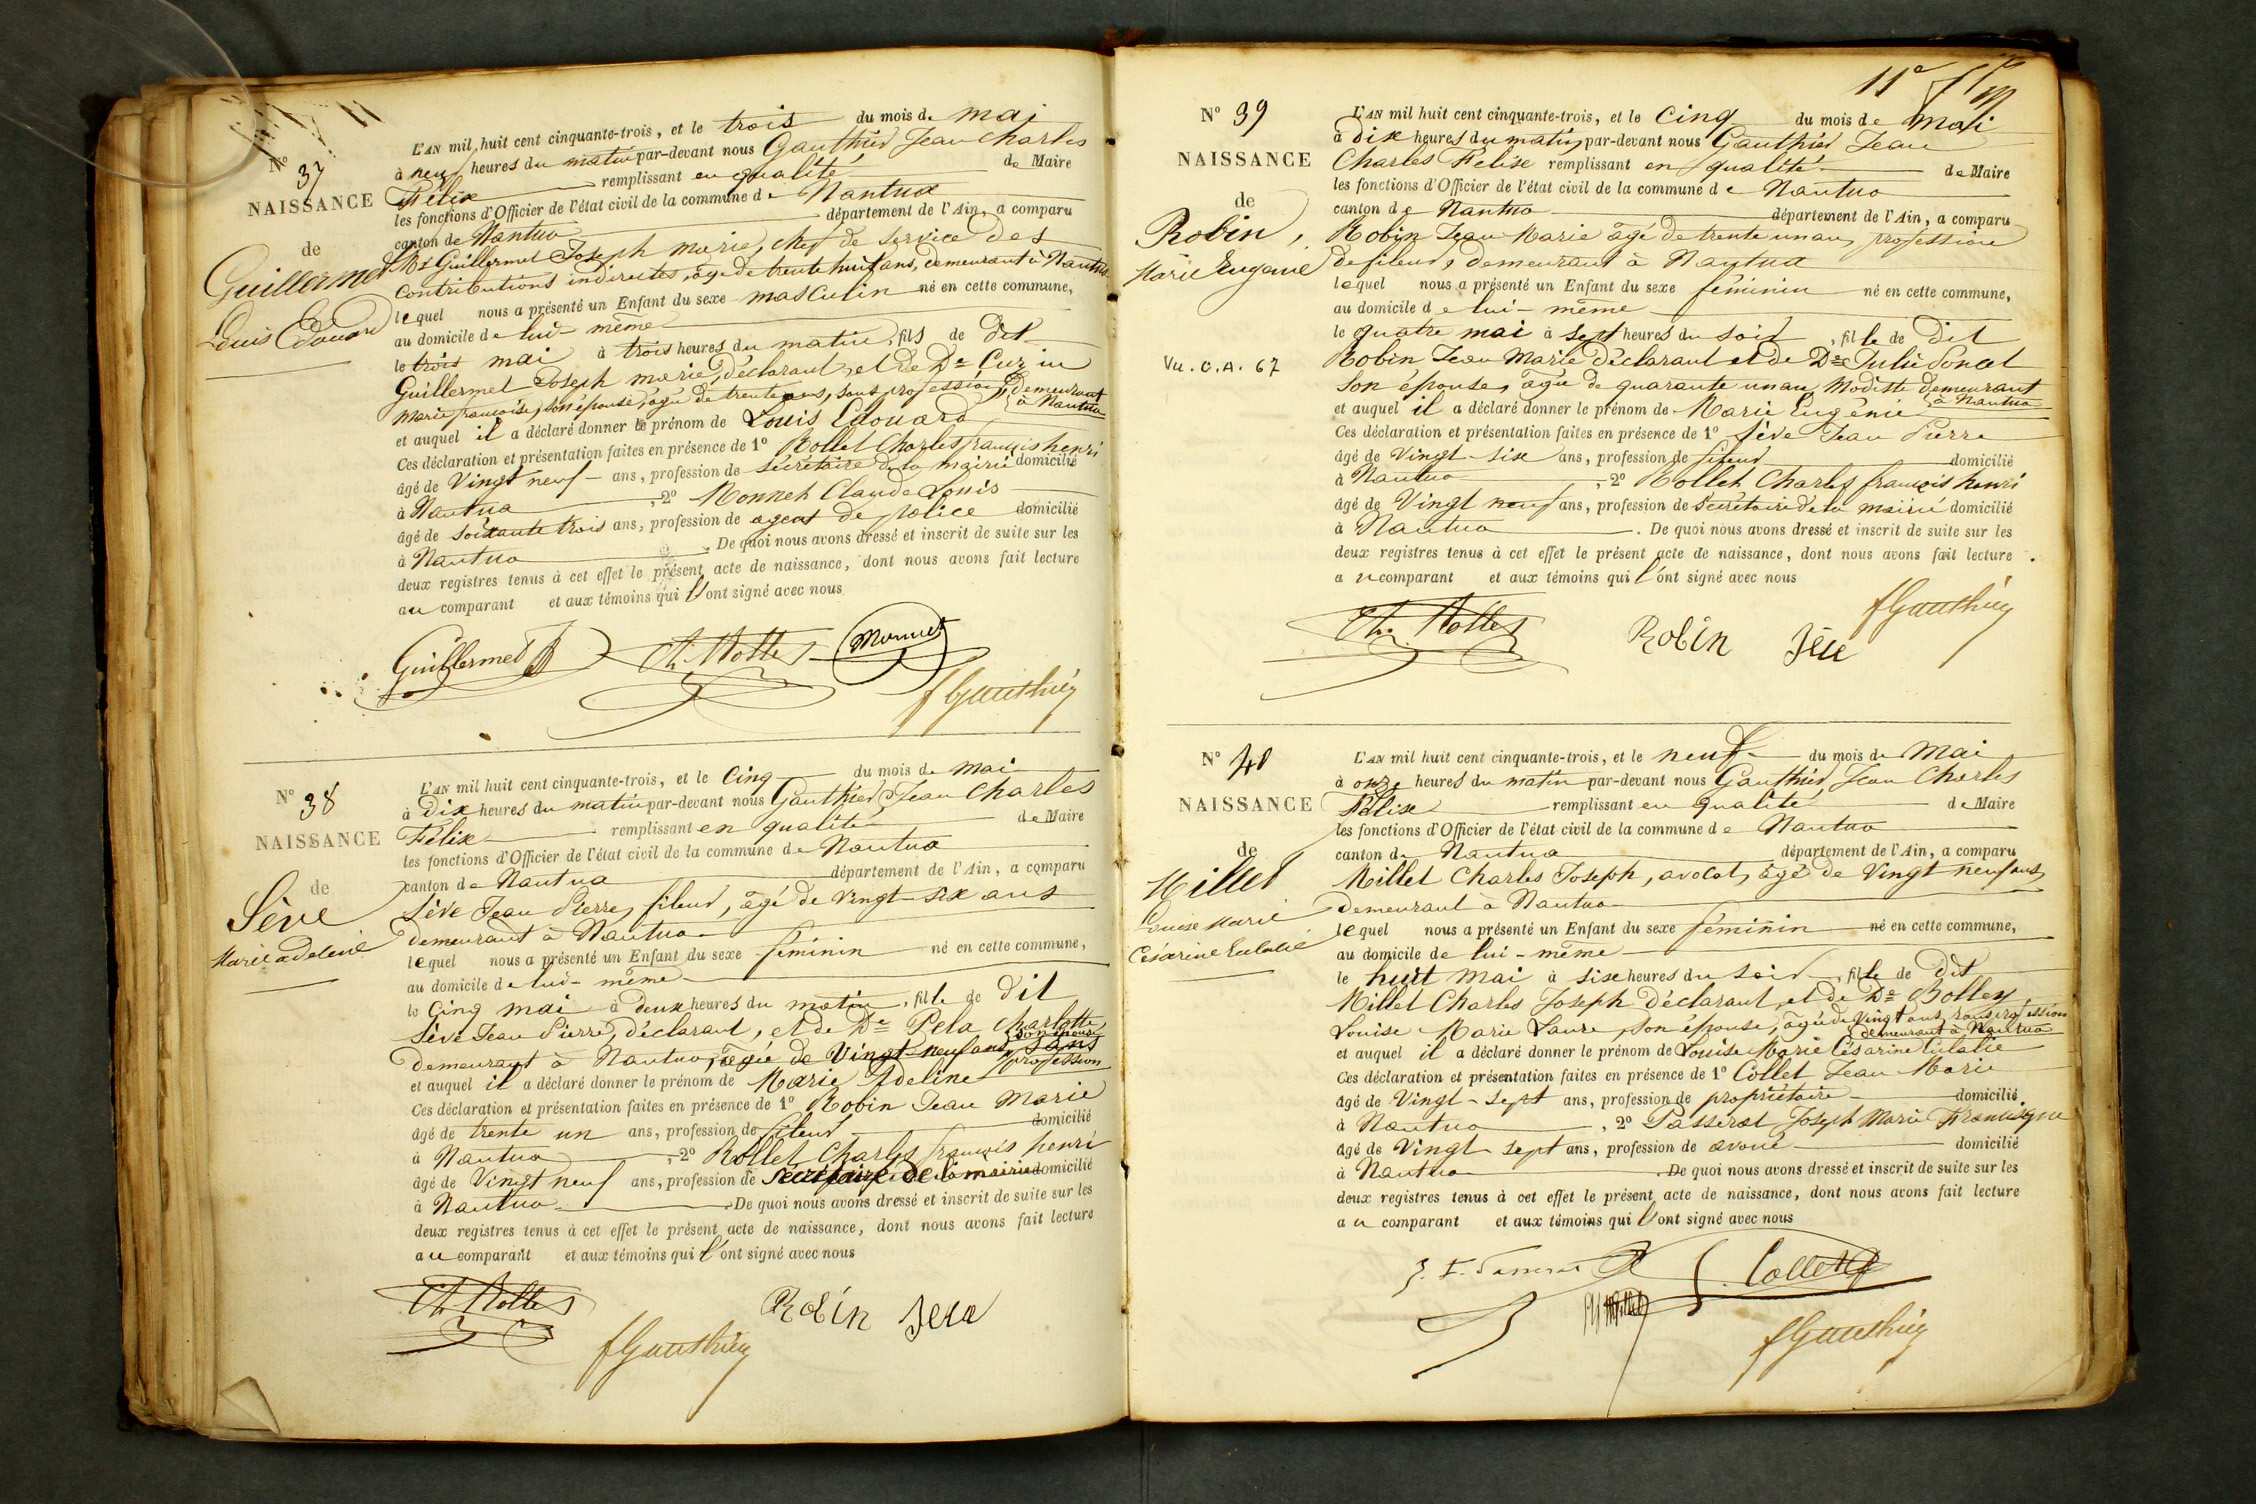 N° 37
NAISSANCE
de
Guillermet
Louis Edouard
L'AN mil huit cent cinquante-trois, et le trois du mois de mai
à neuf heures du matin par-devant nous Gauthier Jean Charles
Félix remplissant en qualité de Maire
les fonctions d'Officier de l'état civil de la commune de Nantua
canton de Nantua département de l'Ain, a comparu
Mr Guillermet Joseph marie, chef de service des
contributions indirectes, âgé de trente huit ans, demeurant à Nantua
lequel nous a présenté un Enfant du sexe masculin né en cette commune,
au domicile de lui-même
le trois mai à trois heures du matin, fils de dit
Guillermet Joseph marie, déclarant, et de De Cuzin
Marie françoise, son épouse, âgée de trente ans, sans profession, demeurant à Nantua
et auquel il a déclaré donner le prénom de Louis Edouard
Ces déclaration et présentation faites en présence de 1° Rollet Charles françois henri
âgé de Vingt neuf ans, profession de secrétaire de la mairie domicilié
à Nantua, 2° Monnet Claude Louis
âgé de soixante trois ans, profession de agent de police domicilié
à Nantua. De quoi nous avons dressé et inscrit de suite sur les
deux registres tenus à cet effet le présent acte de naissance, dont nous avons fait lecture
au comparant et aux témoins qui l'ont signé avec nous
Guillermet Ch. Rollet Monnet
f Gauthier
N° 38
NAISSANCE
de
Sève
Marie adeline
L'AN mil huit cent cinquante-trois, et le Cinq du mois de mai
à Dix heures du matin par-devant nous Gauthier Jean Charles
Félix remplissant en qualité de Maire
les fonctions d'Officier de l'état civil de la commune de Nantua
canton de Nantua département de l'Ain, a comparu
Sève Jean Pierre, fileur, âgé de vingt-six ans
demeurant à Nantua
lequel nous a présenté un Enfant du sexe féminin né en cette commune,
au domicile de lui-même
le Cinq mai à deux heures du matin, fille de dit
Sève Jean Pierre, déclarant, et de De Pela Charlotte, son épouse
demeurant à Nantua, âgée de Vingt-neuf ans, sans profession
et auquel il a déclaré donner le prénom de Marie Adeline
Ces déclaration et présentation faites en présence de 1° Robin Jean Marie
âgé de trente un ans, profession de fileur domicilié
à Nantua, 2° Rollet Charles françois henri
âgé de Vingt neuf ans, profession de Secrétaire de la mairie domicilié
à Nantua. De quoi nous avons dressé et inscrit de suite sur les
deux registres tenus à cet effet le présent acte de naissance, dont nous avons fait lecture
au comparant et aux témoins qui l'ont signé avec nous
Ch. Rollet Robin Seve
f Gauthier
11e
N° 39
NAISSANCE
de
Robin,
Marie Eugénie
Vu. C.A. 67
L'AN mil huit cent cinquante-trois, et le Cinq du mois de Mai
à Dix heures du matin par-devant nous Gauthier Jean
Charles Felix remplissant en qualité de Maire
les fonctions d'Officier de l'état civil de la commune de Nantua
canton de Nantua département de l'Ain, a comparu
Robin Jean Marie âgé de trente un ans, profession
de fileur, demeurant à Nantua
lequel nous a présenté un Enfant du sexe féminin né en cette commune,
au domicile de lui-même
le quatre mai à sept heures du soir, fille de dit
Robin Jean Marie déclarant et de De Julie Poncet
Son épouse, âgée de quarante un ans, Modiste demeurant à Nantua
et auquel il a déclaré donner le prénom de Marie Eugénie
Ces déclaration et présentation faites en présence de 1° Sève Jean Pierre
âgé de Vingt-six ans, profession de fileur domicilié
à Nantua, 2° Rollet Charles françois henri
âgé de Vingt neuf ans, profession de Secrétaire de la mairie domicilié
à Nantua. De quoi nous avons dressé et inscrit de suite sur les
deux registres tenus à cet effet le présent acte de naissance, dont nous avons fait lecture
au comparant et aux témoins qui l'ont signé avec nous
Ch. Rollet Robin Seve f Gauthier
N° 40
NAISSANCE
de
Millet
Louise Marie
Césarine Eulalie
L'AN mil huit cent cinquante-trois, et le neuf du mois de Mai
à onze heures du matin par-devant nous Gauthier, Jean Charles
Félix remplissant en qualité de Maire
les fonctions d'Officier de l'état civil de la commune de Nantua
canton de Nantua département de l'Ain, a comparu
Millet Charles Joseph, avocat, âgé de Vingt neuf ans,
demeurant à Nantua
lequel nous a présenté un Enfant du sexe féminin né en cette commune,
au domicile de lui-même
le huit Mai à six heures du soir, fille de dit
Millet Charles Joseph déclarant, et de De Bolley
Louise Marie Laure, son épouse, âgée de Vingt ans, sans profession demeurant à Nantua
et auquel il a déclaré donner le prénom de Louise Marie Césarine Eulalie
Ces déclaration et présentation faites en présence de 1° Collet Jean Marie
âgé de Vingt-sept ans, profession de propriétaire domicilié
à Nantua, 2° Passerat Joseph Marie
âgé de Vingt sept ans, profession de avoué domicilié
à Nantua. De quoi nous avons dressé et inscrit de suite sur les
deux registres tenus à cet effet le présent acte de naissance, dont nous avons fait lecture
au comparant et aux témoins qui l'ont signé avec nous
Collet
f Gauthier